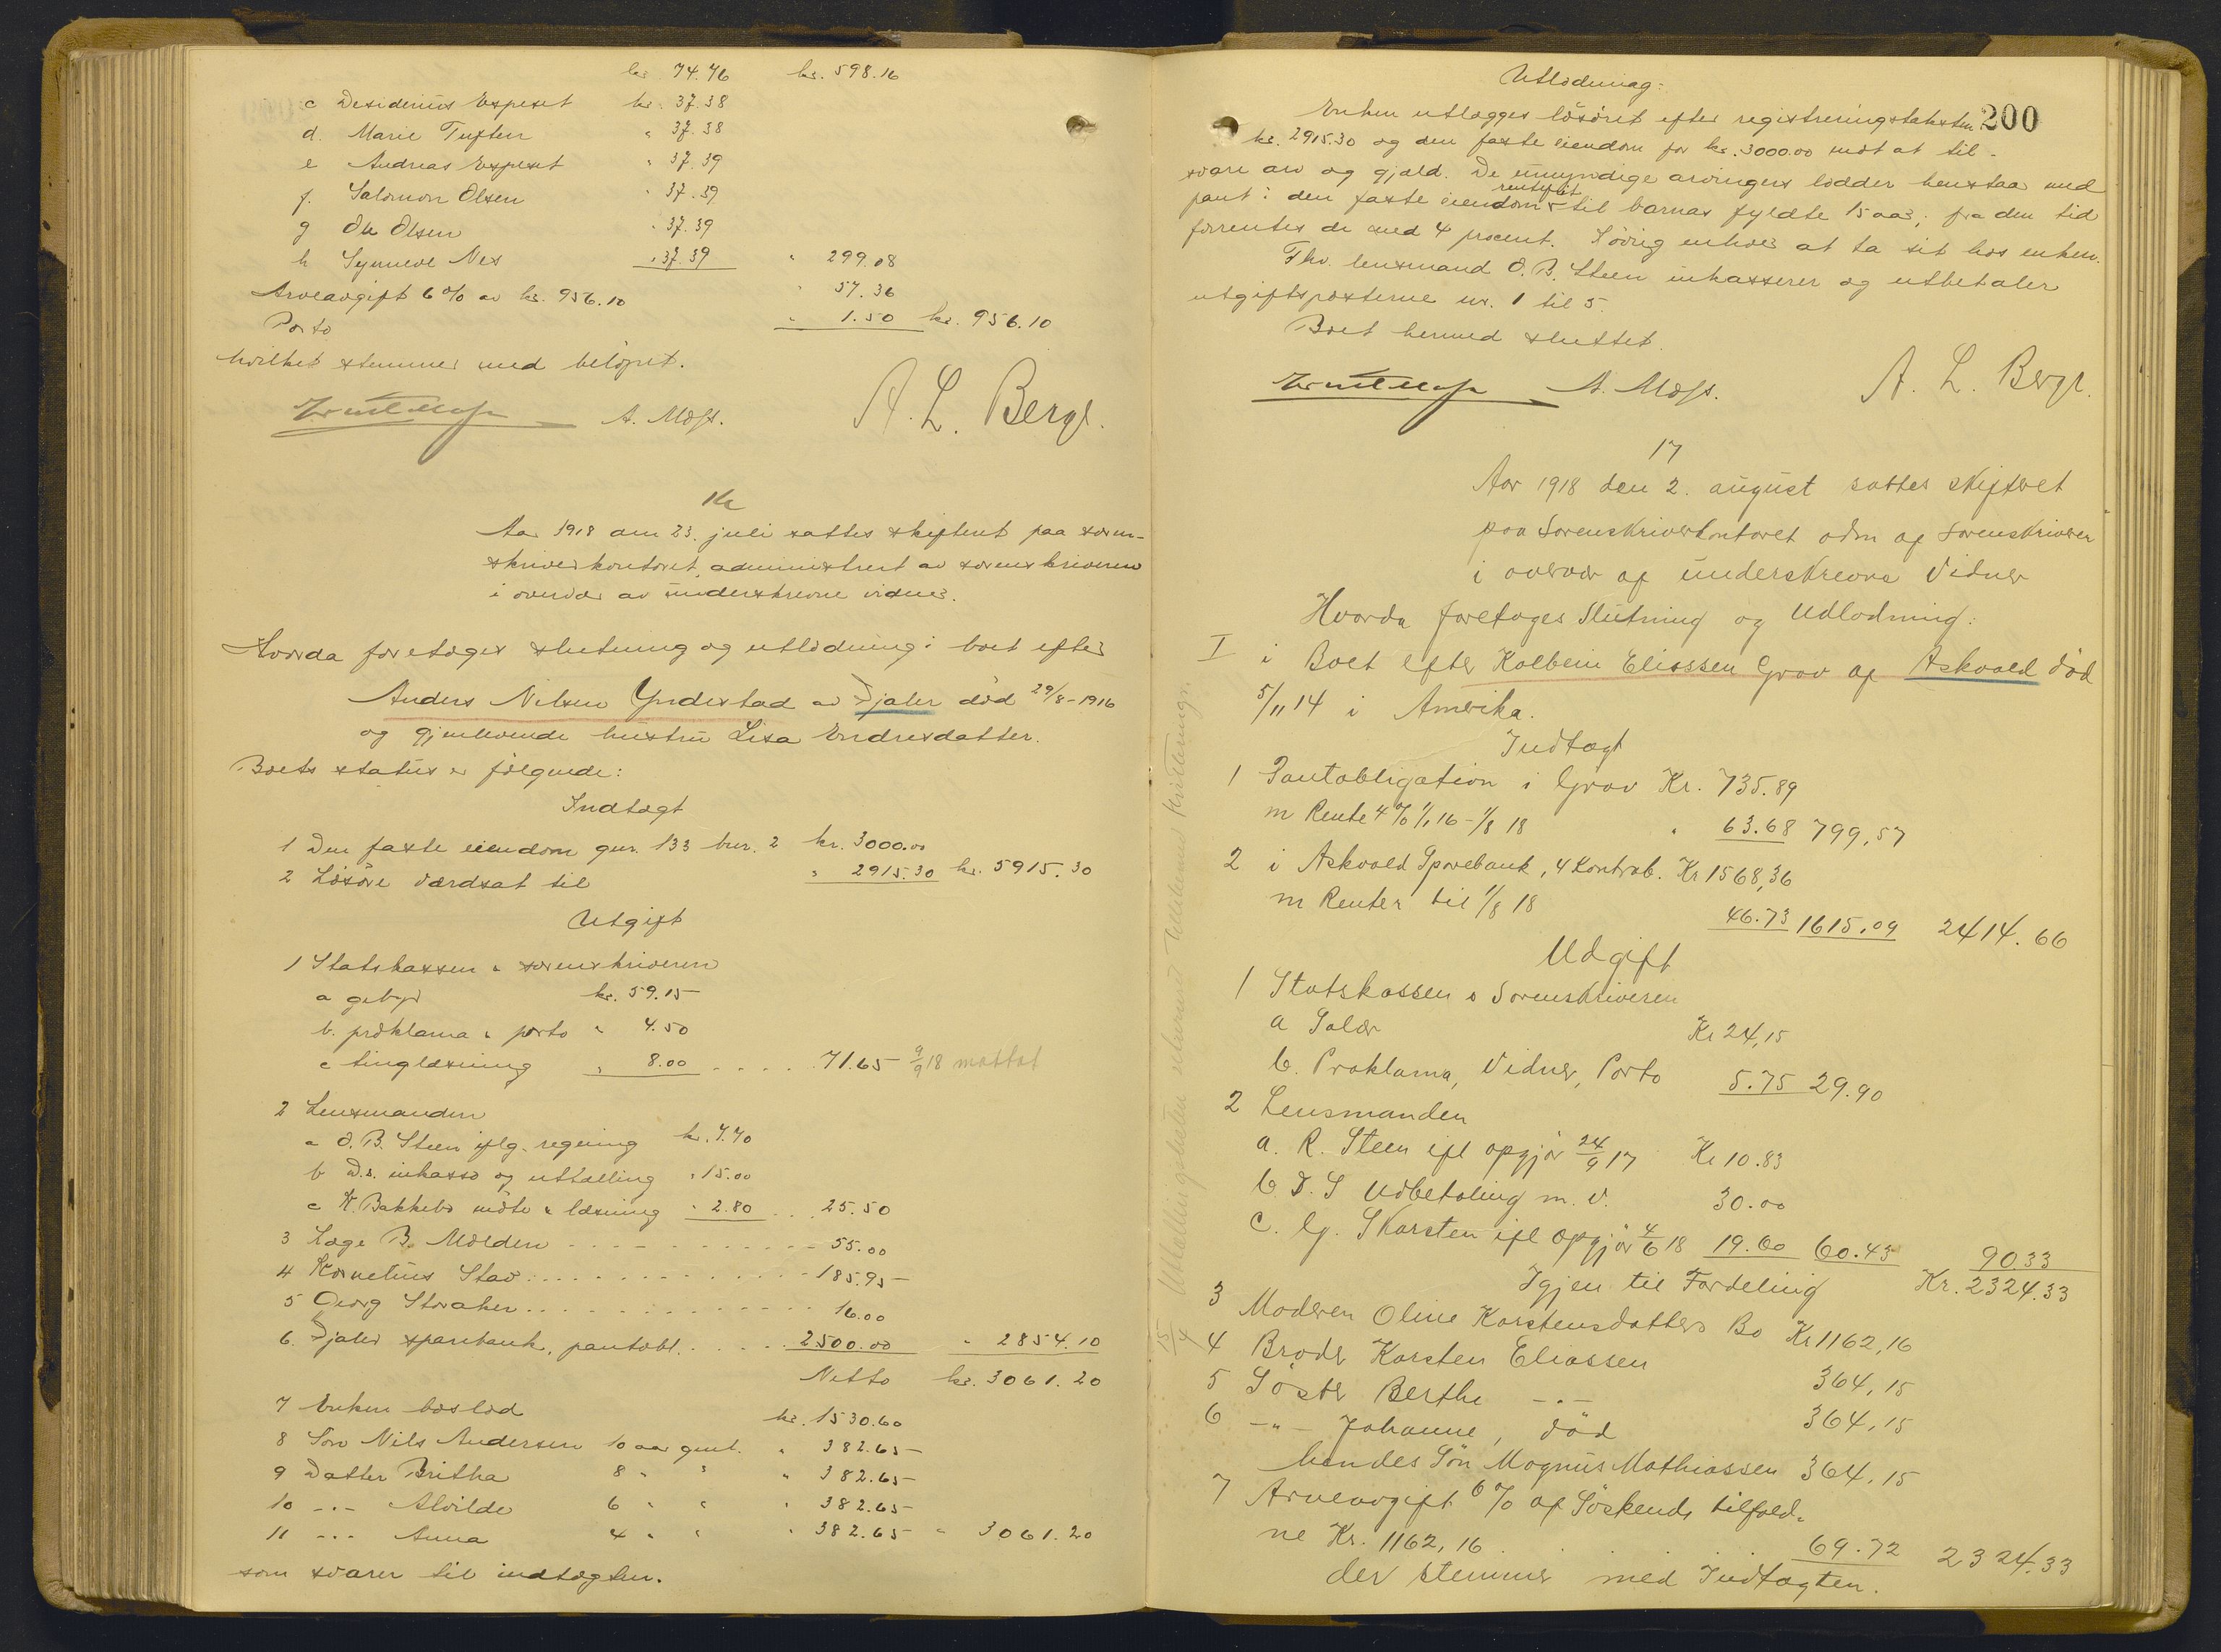 kr. 74.76 kr. 598.16
c Desiderius Espeset kr. 37.38
d. Marie Tuften " 37.38
e Andreas Espeset " 37.39
f. Salomon Olsen " 37.39
g Ole Olsen " 37.39
h Synneve Nes " 37.39 " 299.08
Arveavgift 6% av kr. 956.10 " 57.36
Porto " 1.50 kr. 956.10
hvilket stemmer med beløpet.
A. Moss. A. L. Berge.
Aar 1918 den 23. juli sattes skifteret paa soren-
skriverkontoret, administrert av sorenskriveren
i overvær av underskrevne vidner.
Hvorda foretoges slutning og utlodning i boet efter
Anders Nilsen Yndestad av Fjaler død 29/8-1916
og gjenlevende hustru Lisa Endresdatter.
Boets status er følgende:
Indtægt
1 Den faste eiendom gnr. 133 bnr. 2 kr. 3000.00
2 Løsøre værdsat til " 2915.30 kr. 5915.30
Utgift
1 Statskassen v sorenskriveren
a gebyr kr. 59.15
b. proklama & porto " 4.50
c tinglæsning " 8.00 .... 71.65 9/9 18 mottat
2 Lensmanden
a O. B. Steen iflg. regning kr. 7.70
b D.s. inkasso og uttælling " 15.00
c K. Bakkebø møte & læsning " 2.80 .. 25.50
3 Læge B. Molden - - - - 55.00
4 Kornelius Stav . . . . 185.95
5 Georg Storaker . . . . 16.00
6. Fjaler sparebank, pantobl. . . . . 2500.00 " 2854.10
Netto kr. 3061.20
7 Enkens boslod kr. 1530.60
8 Søn Nils Andersen 10 aar gml. " 382.65
9 Datter Britha 8 " " " 382.65
10 -"- Alvilde 6 " " " 382.65
11 -"- Anna 4 " " " 382.65 " 3061.20
som svarer til indtægten.
200
Utlodning:
Enken utlægges løsøret efter registreringstaksten
kr. 2915.30 og den faste eiendom for kr. 3000.00 mot at til-
svare arv og gjæld. De umyndige arvingers lodder henstaa med
pant i den faste eiendom rentefrit til barnas fyldte 15 aar; fra den tid
forrentes de med 4 procent. Iøvrig enhver at ta sit hos enken.
Fhv. lensmand O. B. Steen inkasserer og utbetaler
utgiftsposterne nr. 1 til 5.
Boet hermed sluttet.
A. Moss. A. L. Berge.
17
Aar 1918 den 2. august sattes skifteret
paa Sorenskriverkontoret adm af Sorenskriveren
i overvær af underskrevne Vidner
Hvorda foretoges Slutning og Udlodning:
I i Boet efter Kolbein Eliassen Grov af Askvold død
5/11 14 i Amerika.
Indtægt
1 Pantobligation i Grov Kr. 735.89
m Rente 4% 1/1 16 - 1/8 18 " 63.68 799,57
2 i Askvold Sparebank, 4 Kontrab. Kr 1568,36
m Renter til 1/8 18 46.73 1615.09 2414.66
Udgift
1 Statskassen v Sorenskriveren
a Salær Kr 24,15
b. Proklama, Vidner, Porto 5.75 29.90
2 Lensmanden
a. R. Steen ifl opgjør 24/9 17 Kr 10.83
b. D. S Udbetaling m. v. 30.00
c. lg. Skarsten ifl opgjør 4/6 18 19.60 60.43 90.33
Igjen til Fordeling Kr. 2324.33
3 Moderen Oline Karstensdatters Bo Kr 1162,16
4 Broder Karsten Eliassen 364,15
5 Søster Berthe -"- 364,15
6 -"- Johanne, død
hendes Søn Magnus Mathiassen 364,15
7 Arveavgift 6% af Søskende tilfald-
ne Kr. 1162,16 . . . . 69.72 2324.33
der stemmer med Indtægten.